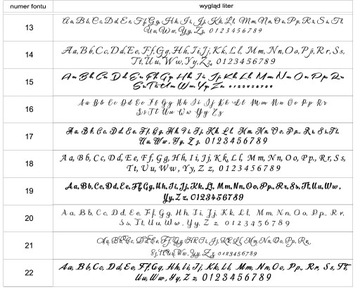 numer fontu wygląd liter
13 Aa Bb Cc Dd Ee Ff Gg Hh Ii Jj Kk Ll Mm Nn Oo Pp Rr Ss Tt
Uu Ww Yy Zz 0 1 2 3 4 5 6 7 8 9
14 Aa, Bb, Cc, Dd, Ee, Ff, Gg, Hh, Ii, Jj, Kk, Ll, Mm, Nn, Oo, Pp, Rr, Ss,
Tt, Uu, Ww, Yy, Zz, 0 1 2 3 4 5 6 7 8 9
15 Aa Bb Cc Dd Ee Ff Gg Hh Ii Jj Kk Ll Mm Nn Oo Pp Rr
Ss Tt Uu Ww Yy Zz 0 1 2 3 4 5 6 7 8 9
16 Aa Bb Cc Dd Ee Ff Gg Hh Ii Jj Kk Ll Mm Nn Oo Pp Rr
Ss Tt Uu Ww Yy Zz
17 Aa Bb Cc Dd Ee Ff Gg Hh Ii Jj Kk Ll Mm Nn Oo Pp Rr Ss Tt
Uu Ww Yy Zz 0 1 2 3 4 5 6 7 8 9
18 Aa, Bb, Cc, Dd, Ee, Ff, Gg, Hh, Ii, Jj, Kk, Ll, Mm, Nn, Oo, Pp, Rr, Ss,
Tt, Uu, Ww, Yy, Zz, 0 1 2 3 4 5 6 7 8 9
19 Aa, Bb, Cc, Dd, Ee, Ff, Gg, Hh, Ii, Jj, Kk, Ll, Mm, Nn, Oo, Pp, Rr, Ss, Tt, Uu, Ww,
Yy, Zz 0 1 2 3 4 5 6 7 8 9
20 Aa, Bb, Cc, Dd, Ee, Ff, Gg, Hh, Ii, Jj, Kk, Ll, Mm, Nn, Oo, Pp, Rr,
Ss, Tt, Uu, Ww, Yy, Zz 0 1 2 3 4 5 6 7 8 9
21 Aa, Bb, Cc, Dd, Ee, Ff, Gg, Hh, Ii, Jj, Kk, Ll, Mm, Nn, Oo, Pp, Rr,
Ss, Tt, Uu, Ww, Yy, Zz 0 1 2 3 4 5 6 7 8 9
22 Aa, Bb, Cc, Dd, Ee, Ff, Gg, Hh, Ii, Jj, Kk, Ll, Mm, Nn, Oo, Pp, Rr, Ss, Tt,
Uu, Ww, Yy, Zz 0 1 2 3 4 5 6 7 8 9